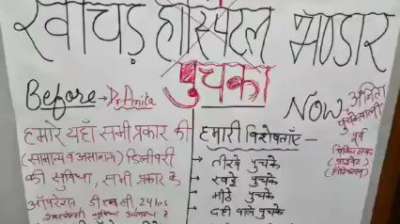 खीचड़ हॉस्पिटल भण्डार
पुचका
Before → Dr. Anita
Now → अनिता
पूर्व
हमारे यहाँ सभी प्रकार की
(सामान्य व असामान्य) डिलीवरी
की सुविधा, सभी प्रकार के
ऑपरेशन
हमारी विशेषताएँ -
→ तीखे पुचके
→ खट्टे पुचके
→ मीठे पुचके
→ दही वाले पुचके